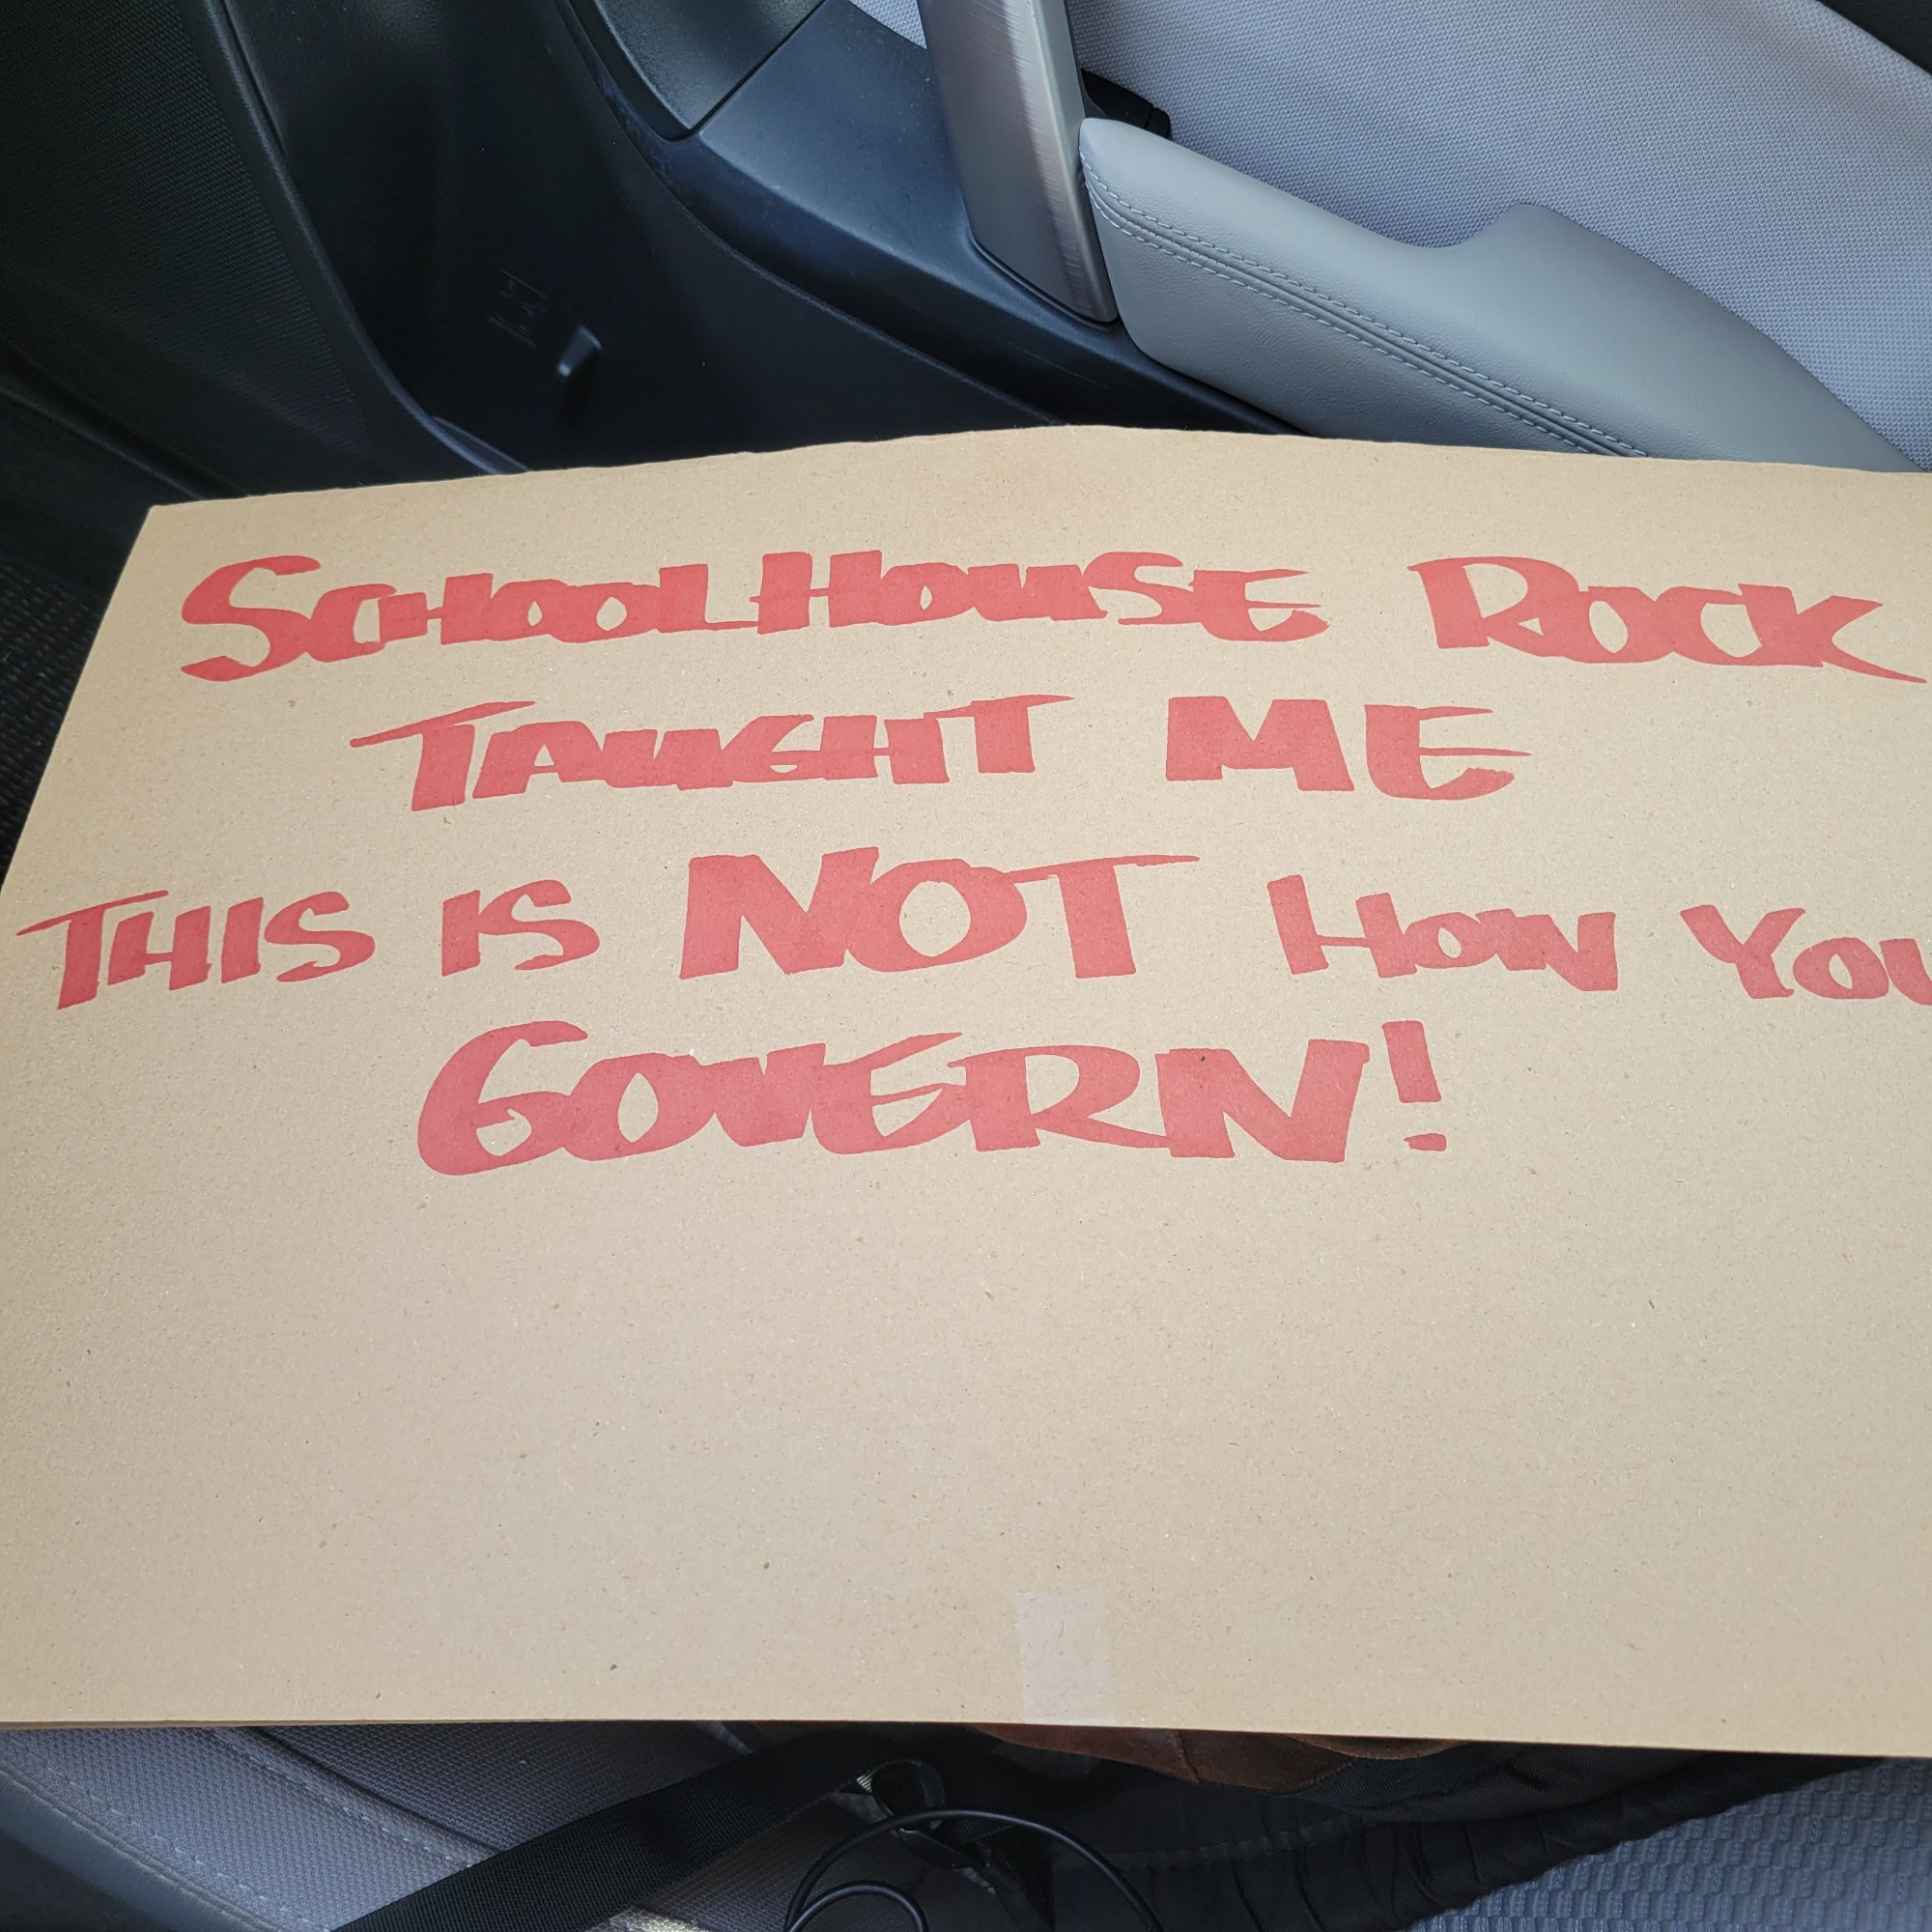 SCHOOLHOUSE ROCK
TAUGHT ME
THIS IS NOT HOW YOU
GOVERN!